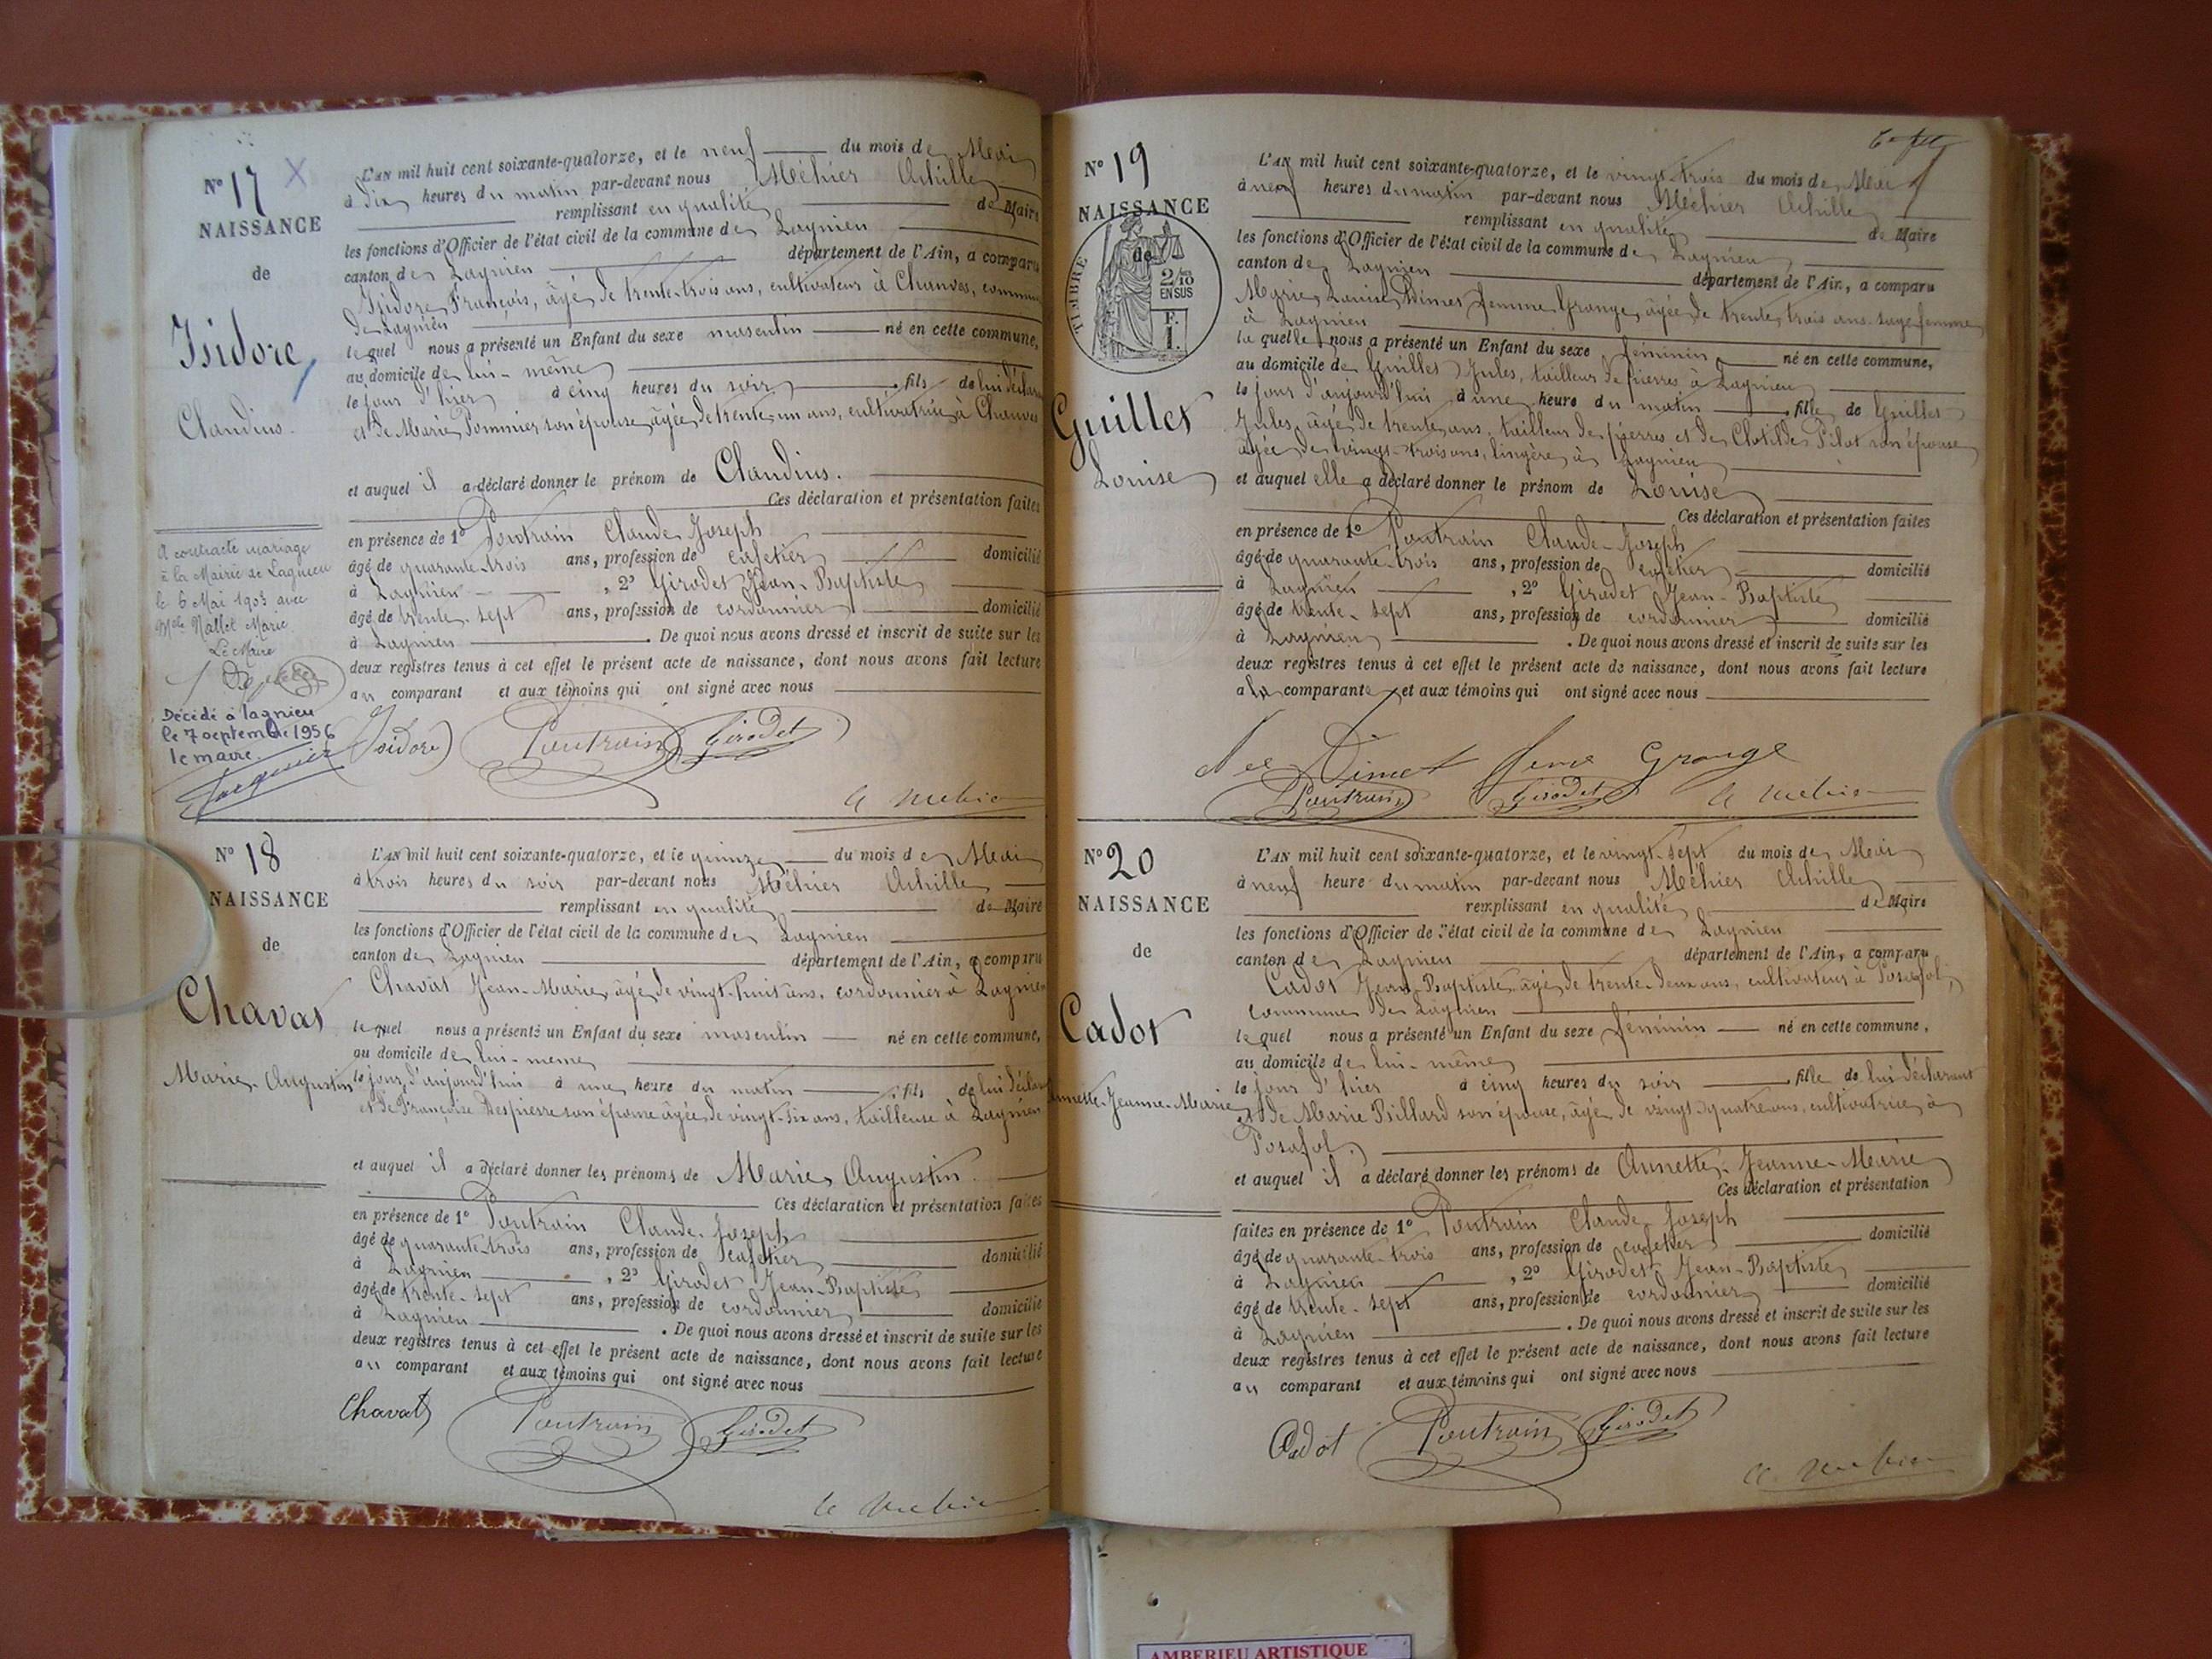 N° 17 X
NAISSANCE
de
Isidore
Claudius.
A contracté mariage
à la Mairie de Lagnieu
le 6 Mai 1903 avec
Mlle Nallet Marie
Le Maire
Décédé à Lagnieu
le 7 septembre 1956
le maire
L'AN mil huit cent soixante-quatorze, et le neuf du mois de Mai
à dix heures du matin par-devant nous Méhier Achille
remplissant en qualité de Maire
les fonctions d'Officier de l'état civil de la commune de Lagnieu
canton de Lagnieu département de l'Ain, a comparu
Isidore François, âgé de trente-trois ans, cultivateur à Chanves, commune
de Lagnieu
lequel nous a présenté un Enfant du sexe masculin né en cette commune,
au domicile de lui-même
le jour d'hier à cinq heures du soir, fils de lui déclarant
et de Marie Pommier son épouse, âgée de trente-un ans, cultivatrice à Chanves
et auquel il a déclaré donner le prénom de Claudius.
Ces déclaration et présentation faites
en présence de 1° Poutrain Claude Joseph
âgé de quarante-trois ans, profession de cafetier domicilié
à Lagnieu, 2° Girodet Jean-Baptiste
âgé de trente-sept ans, profession de cordonnier domicilié
à Lagnieu. De quoi nous avons dressé et inscrit de suite sur les
deux registres tenus à cet effet le présent acte de naissance, dont nous avons fait lecture
au comparant et aux témoins qui ont signé avec nous
Isidore Poutrain Girodet
A Méhier
N° 18
NAISSANCE
de
Chavat
Marie-Augustin
L'AN mil huit cent soixante-quatorze, et le quinze du mois de Mai
à trois heures du soir par-devant nous Méhier Achille
remplissant en qualité de Maire
les fonctions d'Officier de l'état civil de la commune de Lagnieu
canton de Lagnieu département de l'Ain, a comparu
Chavat Jean-Marie, âgé de vingt-huit ans, cordonnier à Lagnieu
lequel nous a présenté un Enfant du sexe masculin né en cette commune,
au domicile de lui-même
le jour d'aujourd'hui à une heure du matin, fils de lui déclarant
et de Françoise Despierre son épouse âgée de vingt-six ans, tailleuse à Lagnieu
et auquel il a déclaré donner les prénoms de Marie Augustin.
Ces déclaration et présentation faites
en présence de 1° Poutrain Claude-Joseph
âgé de quarante-trois ans, profession de cafetier domicilié
à Lagnieu, 2° Girodet Jean-Baptiste
âgé de trente-sept ans, profession de cordonnier domicilié
à Lagnieu. De quoi nous avons dressé et inscrit de suite sur les
deux registres tenus à cet effet le présent acte de naissance, dont nous avons fait lecture
au comparant et aux témoins qui ont signé avec nous
Chavat Poutrain Girodet
A Méhier
N° 19
NAISSANCE
de
TIMBRE
2/10
EN SUS
F.
1.
Guillet
Louise
L'AN mil huit cent soixante-quatorze, et le vingt-trois du mois de Mai
à neuf heures du matin par-devant nous Méhier Achille
remplissant en qualité de Maire
les fonctions d'Officier de l'état civil de la commune de Lagnieu
canton de Lagnieu département de l'Ain, a comparu
Marie Louise Dimet femme Grange, âgée de trente-trois ans sage femme
à Lagnieu
laquelle nous a présenté un Enfant du sexe féminin né en cette commune,
au domicile de Guillet Jules, tailleur de pierres à Lagnieu
le jour d'aujourd'hui à une heure du matin, fille de Guillet
Jules, âgé de trente ans, tailleur de pierres et de Clotilde Pilot son épouse
âgée de vingt-trois ans, lingère à Lagnieu
et auquel elle a déclaré donner le prénom de Louise
Ces déclaration et présentation faites
en présence de 1° Poutrain Claude-Joseph
âgé de quarante-trois ans, profession de cafetier domicilié
à Lagnieu, 2° Girodet Jean-Baptiste
âgé de trente-sept ans, profession de cordonnier domicilié
à Lagnieu. De quoi nous avons dressé et inscrit de suite sur les
deux registres tenus à cet effet le présent acte de naissance, dont nous avons fait lecture
à la comparante et aux témoins qui ont signé avec nous
née Dimet feme Grange
Poutrain Girodet A Méhier
N° 20
NAISSANCE
de
Cadot
Annette-Jeanne-Marie
L'AN mil huit cent soixante-quatorze, et le vingt-sept du mois de Mai
à neuf heure du matin par-devant nous Méhier Achille
remplissant en qualité de Maire
les fonctions d'Officier de l'état civil de la commune de Lagnieu
canton de Lagnieu département de l'Ain, a comparu
Cadot Jean-Baptiste âgé de trente-deux ans, cultivateur à Posafol,
commune de Lagnieu
lequel nous a présenté un Enfant du sexe féminin né en cette commune,
au domicile de lui-même
le jour d'hier à cinq heures du soir, fille de lui déclarant
et de Marie Billard son épouse, âgée de vingt-quatre ans, cultivatrice à
Posafol.
et auquel il a déclaré donner les prénoms de Annette-Jeanne-Marie
Ces déclaration et présentation
faites en présence de 1° Poutrain Claude Joseph
âgé de quarante-trois ans, profession de cafetier domicilié
à Lagnieu, 2° Girodet Jean-Baptiste
âgé de trente-sept ans, profession de cordonnier domicilié
à Lagnieu. De quoi nous avons dressé et inscrit de suite sur les
deux registres tenus à cet effet le présent acte de naissance, dont nous avons fait lecture
au comparant et aux témoins qui ont signé avec nous
Cadot Poutrain Girodet
A Méhier
AMBERIEU ARTISTIQUE